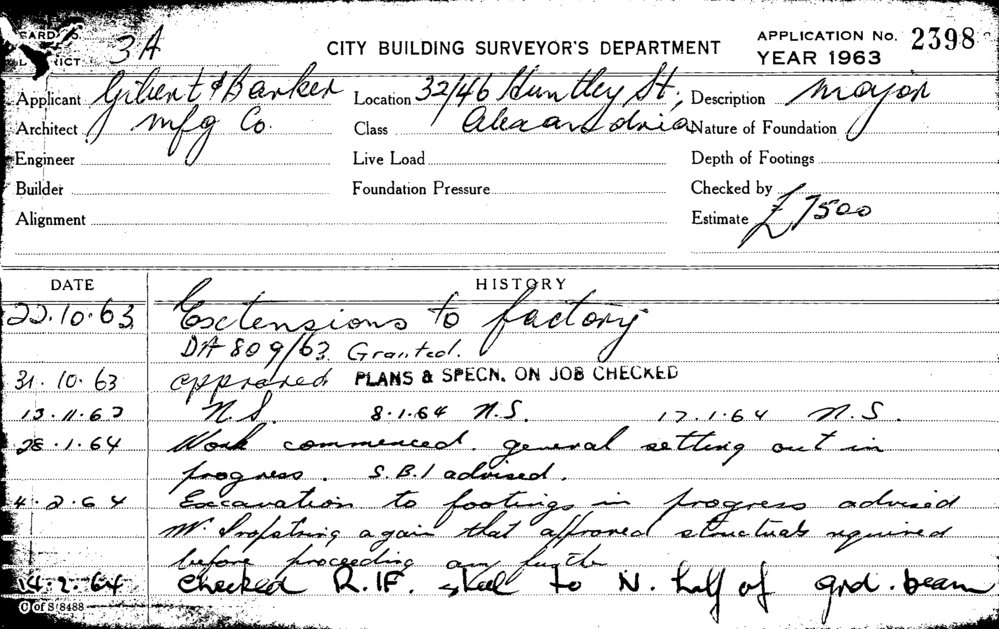 CARD
3A
CITY BUILDING SURVEYOR'S DEPARTMENT
APPLICATION No. 2398
YEAR 1963
Applicant Gilbert & Barker Location 32/46 Huntley St, Description Major
Architect Mfg Co. Class Alexandria Nature of Foundation
Engineer Live Load Depth of Footings
Builder Foundation Pressure Checked by
Alignment Estimate £7500
DATE HISTORY
22.10.63 Extensions to factory
DA 809/63 Granted.
31.10.63 approved PLANS & SPECN. ON JOB CHECKED
13.11.63 N.S. 8.1.64 N.S. 17.1.64 N.S.
28.1.64 Work commenced. general setting out in
progress. S.B.I advised.
4.2.64 Excavation to footings in progress advised
Mr again that approved structurals required
before proceeding any further
14.2.64 Checked R.IF. steel to N. half of grd. beam
C of S 8488